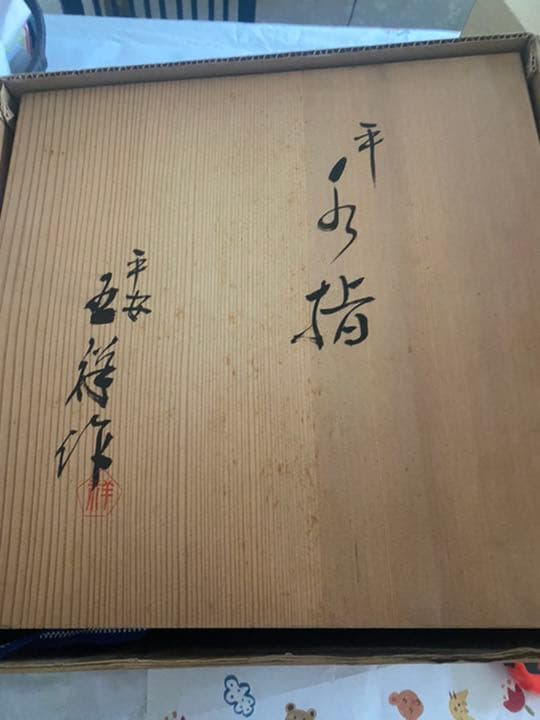 平水指
平安
五祥作
祥